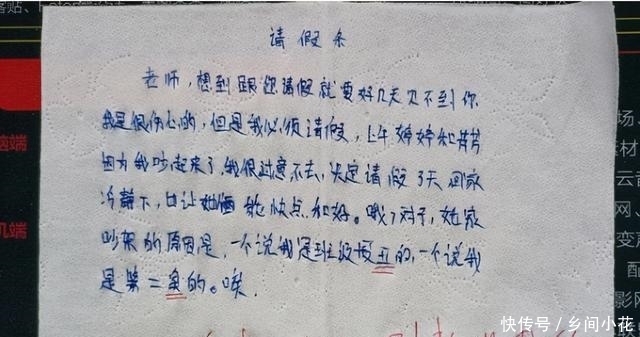 请假条
老师,想到跟您请假就要好几天见不到你
我是很伤心的,但是我必须请假,上午婷婷和
因为我吵起来了,我很过意不去,决定请假3天回家
冷静下,也让她俩能快点和好。哦了对了,她家
吵架的原因是,一个说我是班级最丑的,一个说我
是第二丑的。唉.
脑端
机端
场、
云音
变声
配
影网
快传号/乡间小花